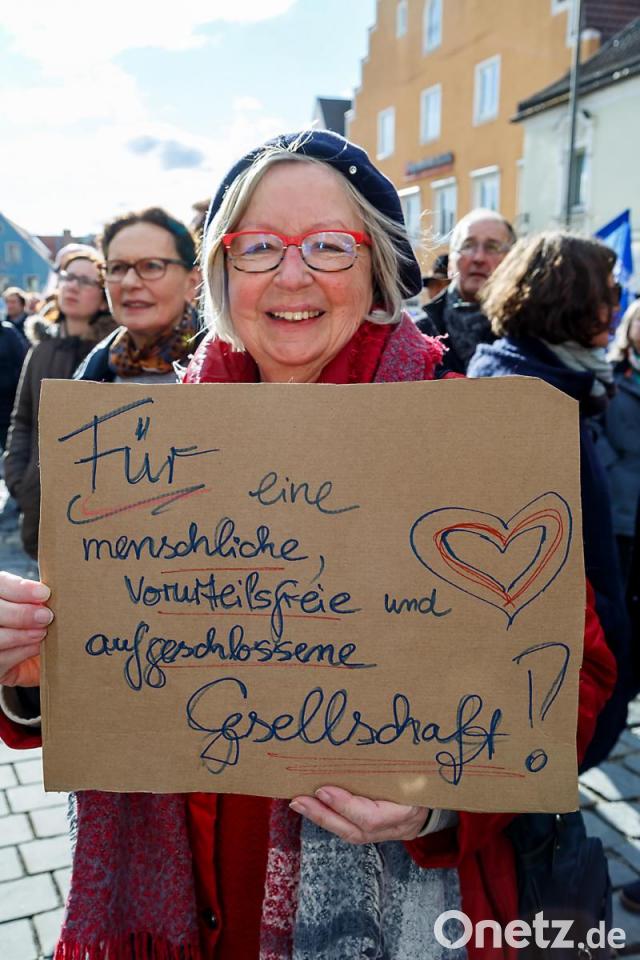 Für
eine
menschliche,
vorurteilsfreie und
aufgeschlossene
Gesellschaft!
Onetz.de